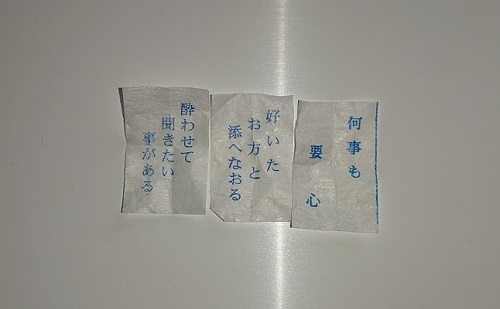 何事も
要心
好いた
お方と
添へなおる
酔わせて
聞きたい
事がある